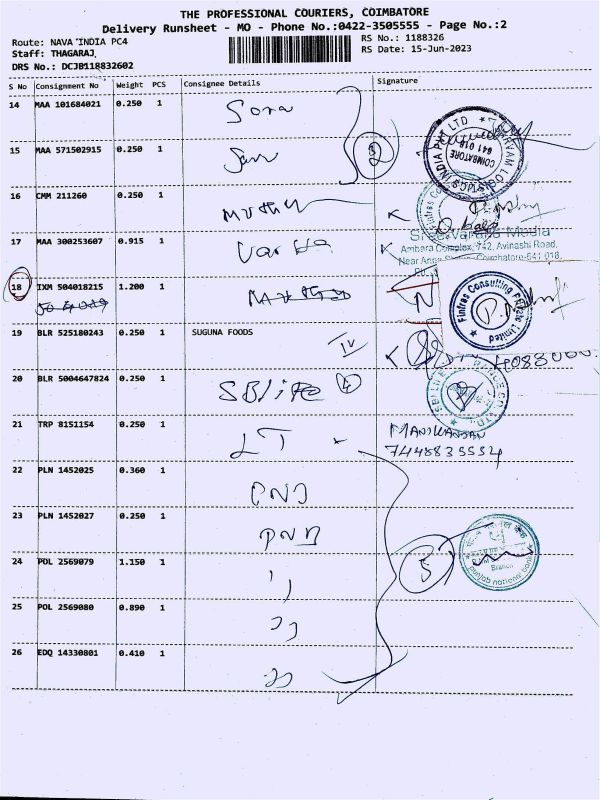 THE PROFESSIONAL COURIERS, COIMBATORE
Delivery Runsheet - MO - Phone No.:0422-3505555 - Page No.:2
Route: NAVA INDIA PC4
RS No.: 1188326
Staff: THAGARAJ,
RS Date: 15-Jun-2023
DRS No.: DCJB118832602
S No Consignment No Weight PCS Consignee Details Signature
14 MAA 101684021 0.250 1 Sona
15 MAA 571502915 0.250 1
16 CMM 211260 0.250 1
17 MAA 300253607 0.915 1
Sree Varsha Media
Ambara Complex, 742, Avinashi Road,
18 IXM 504018215 1.200 1
Fintres Consulting Private Limited
19 BLR 525180243 0.250 1 SUGUNA FOODS IV
20 BLR 5004647824 0.250 1 SBlife 4
21 TRP 8151154 0.250 1 LT
MANIKANDAN
7448835554
22 PLN 1452025 0.360 1 PNB
23 PLN 1452027 0.250 1 PNB
24 POL 2569079 1.150 1 ,,
5
punjab national bank
Branch
25 POL 2569080 0.890 1 ,,
26 EDQ 14330801 0.410 1 ,,